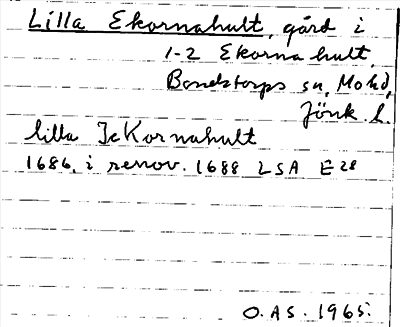 Lilla Ekornahult, gård i
1-2 Ekornahult,
Bondstorps sn, Mo hd,
Jönk. l.
lilla IcKornahult
1686, i renov. 1688 LSA E 28
O.AS. 1965.